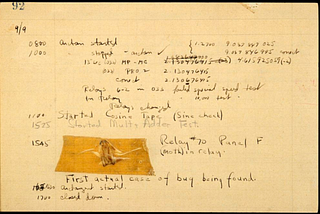 92
9/9
0800 Antan started
1000 " stopped - antan ✓
13'uc (032) MP-MC
033 PRO 2 2.130476415
correct 2.130676415
Relays 6-2 in 033 failed special speed test
in relay
Relays changed
1100 Started Cosine Tape (Sine check)
1525 Started Multi Adder Test.
1545 Relay #70 Panel F
(moth) in relay.
First actual case of bug being found.
antangent started.
1700 closed down.